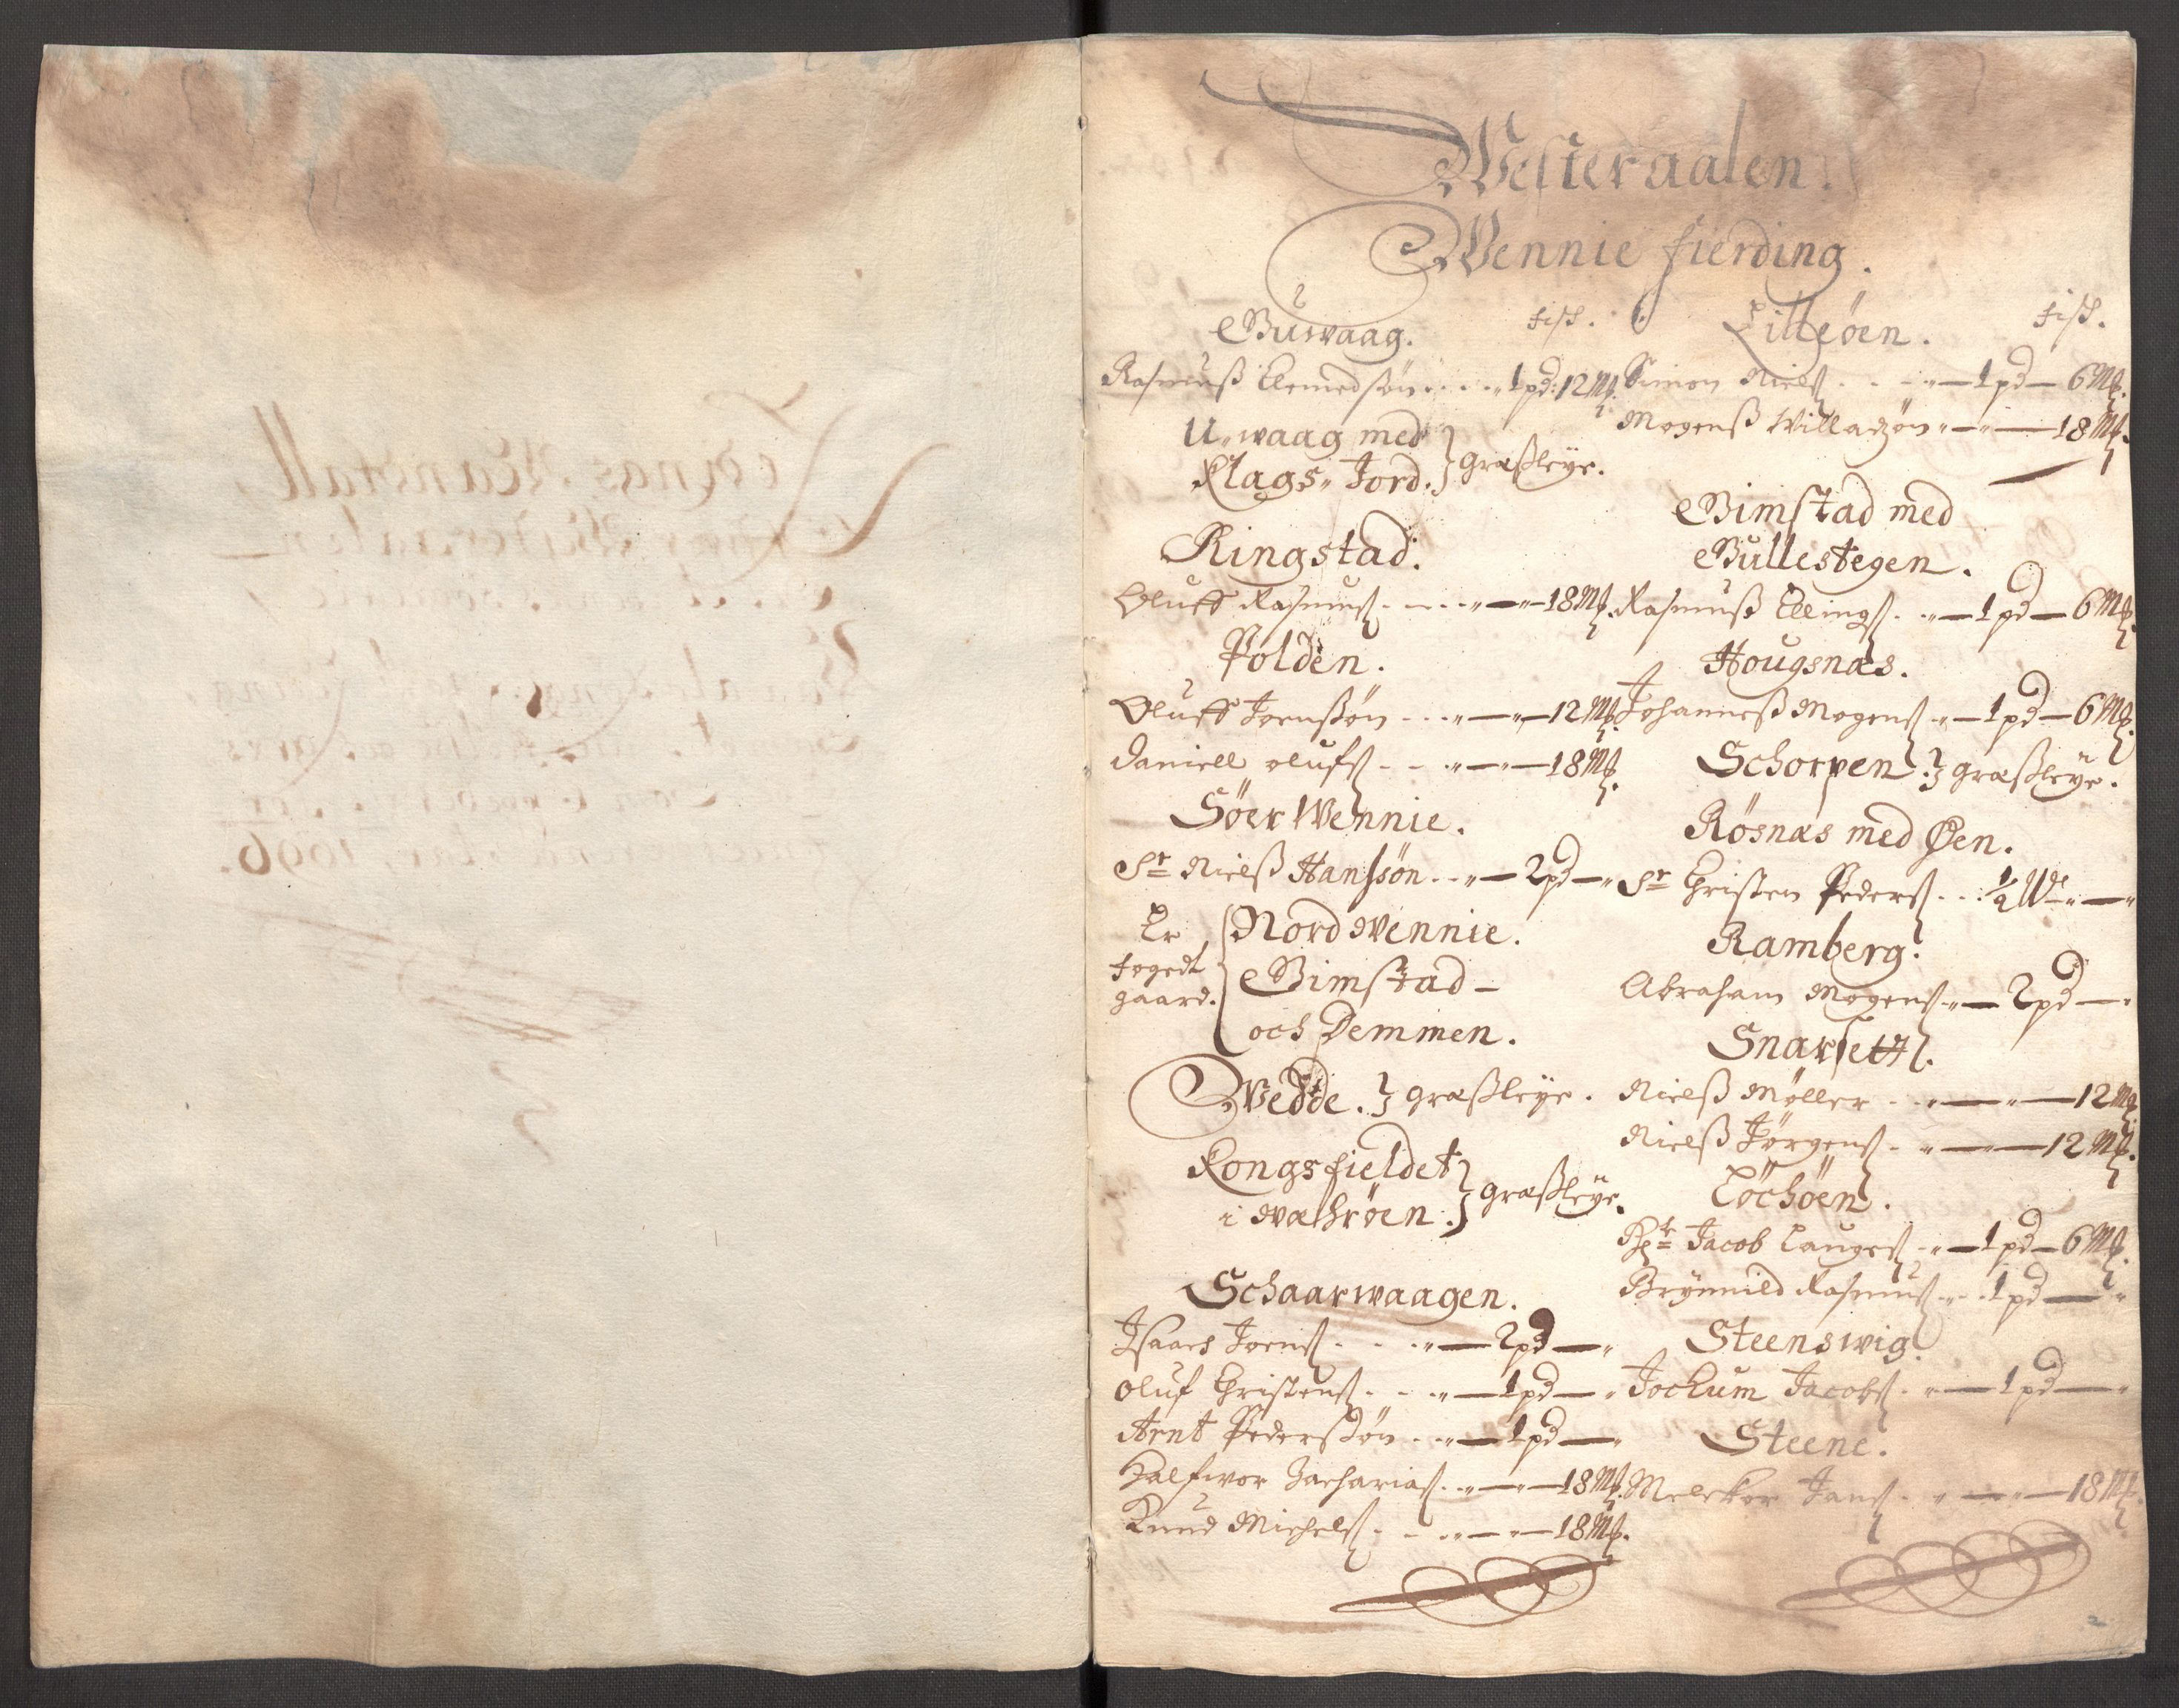 Westeraalen.
Wennie fierding.
Buwaag. fisk.
Rasmuß Clemedsøn - - - 1 pd: 12 Mk.
U-waag med
Klags- Jord. } græßleye.
Ringstad.
Oluff Rasmuß - - - 18 Mk.
Polden.
Oluff Joenßøn - - - 12 Mk.
Daniell olufs - - - 18 Mk.
Söer Wennie.
Sr Nielß Hanssön - - 2 pd -
Er
fogedt
gaard. { Nord Wennie.
Bimstad -
och Demmen.
Wedde. } græßleye.
Kongsfieldet
i Wæhröen. } græßleÿe.
Schaarwaagen.
Isaach Joens - - - 2 pd -
Oluf Christens - - - 1 pd -
Arnt Pedersøn - - - 1 pd -
Halfwor Zacharias - - - 18 Mk.
Knud Michels - - - 18 Mk.
Lilleöen. fisk.
Simon Niels - - - 1 pd - 6 Mk.
Mogenß Willadzøn - - - 18 Mk.
Bimstad med
Bullestegen.
Rasmuß Ellings - - 1 pd - 6 Mk.
Hougsnæs.
Johanneß Mogens - 1 pd - 6 Mk.
Schorpen } græßleÿe.
Rösnæs med Øen.
Sr Christen Peders - - ½ W -
Ramberg.
Abraham Mogens - 2 pd -
Snarsett.
Nielß Møller - - - 12 Mk.
Nielß Jørgens - - - 12 Mk.
Löchöen.
Hr Jacob Lauges - 1 pd - 6 Mk.
Brynnild Rasmus - - 1 pd -
Steenswig.
Jochum Jacobs - 1 pd -
Steene.
Melchor Jans - - - 18 Mk.
2